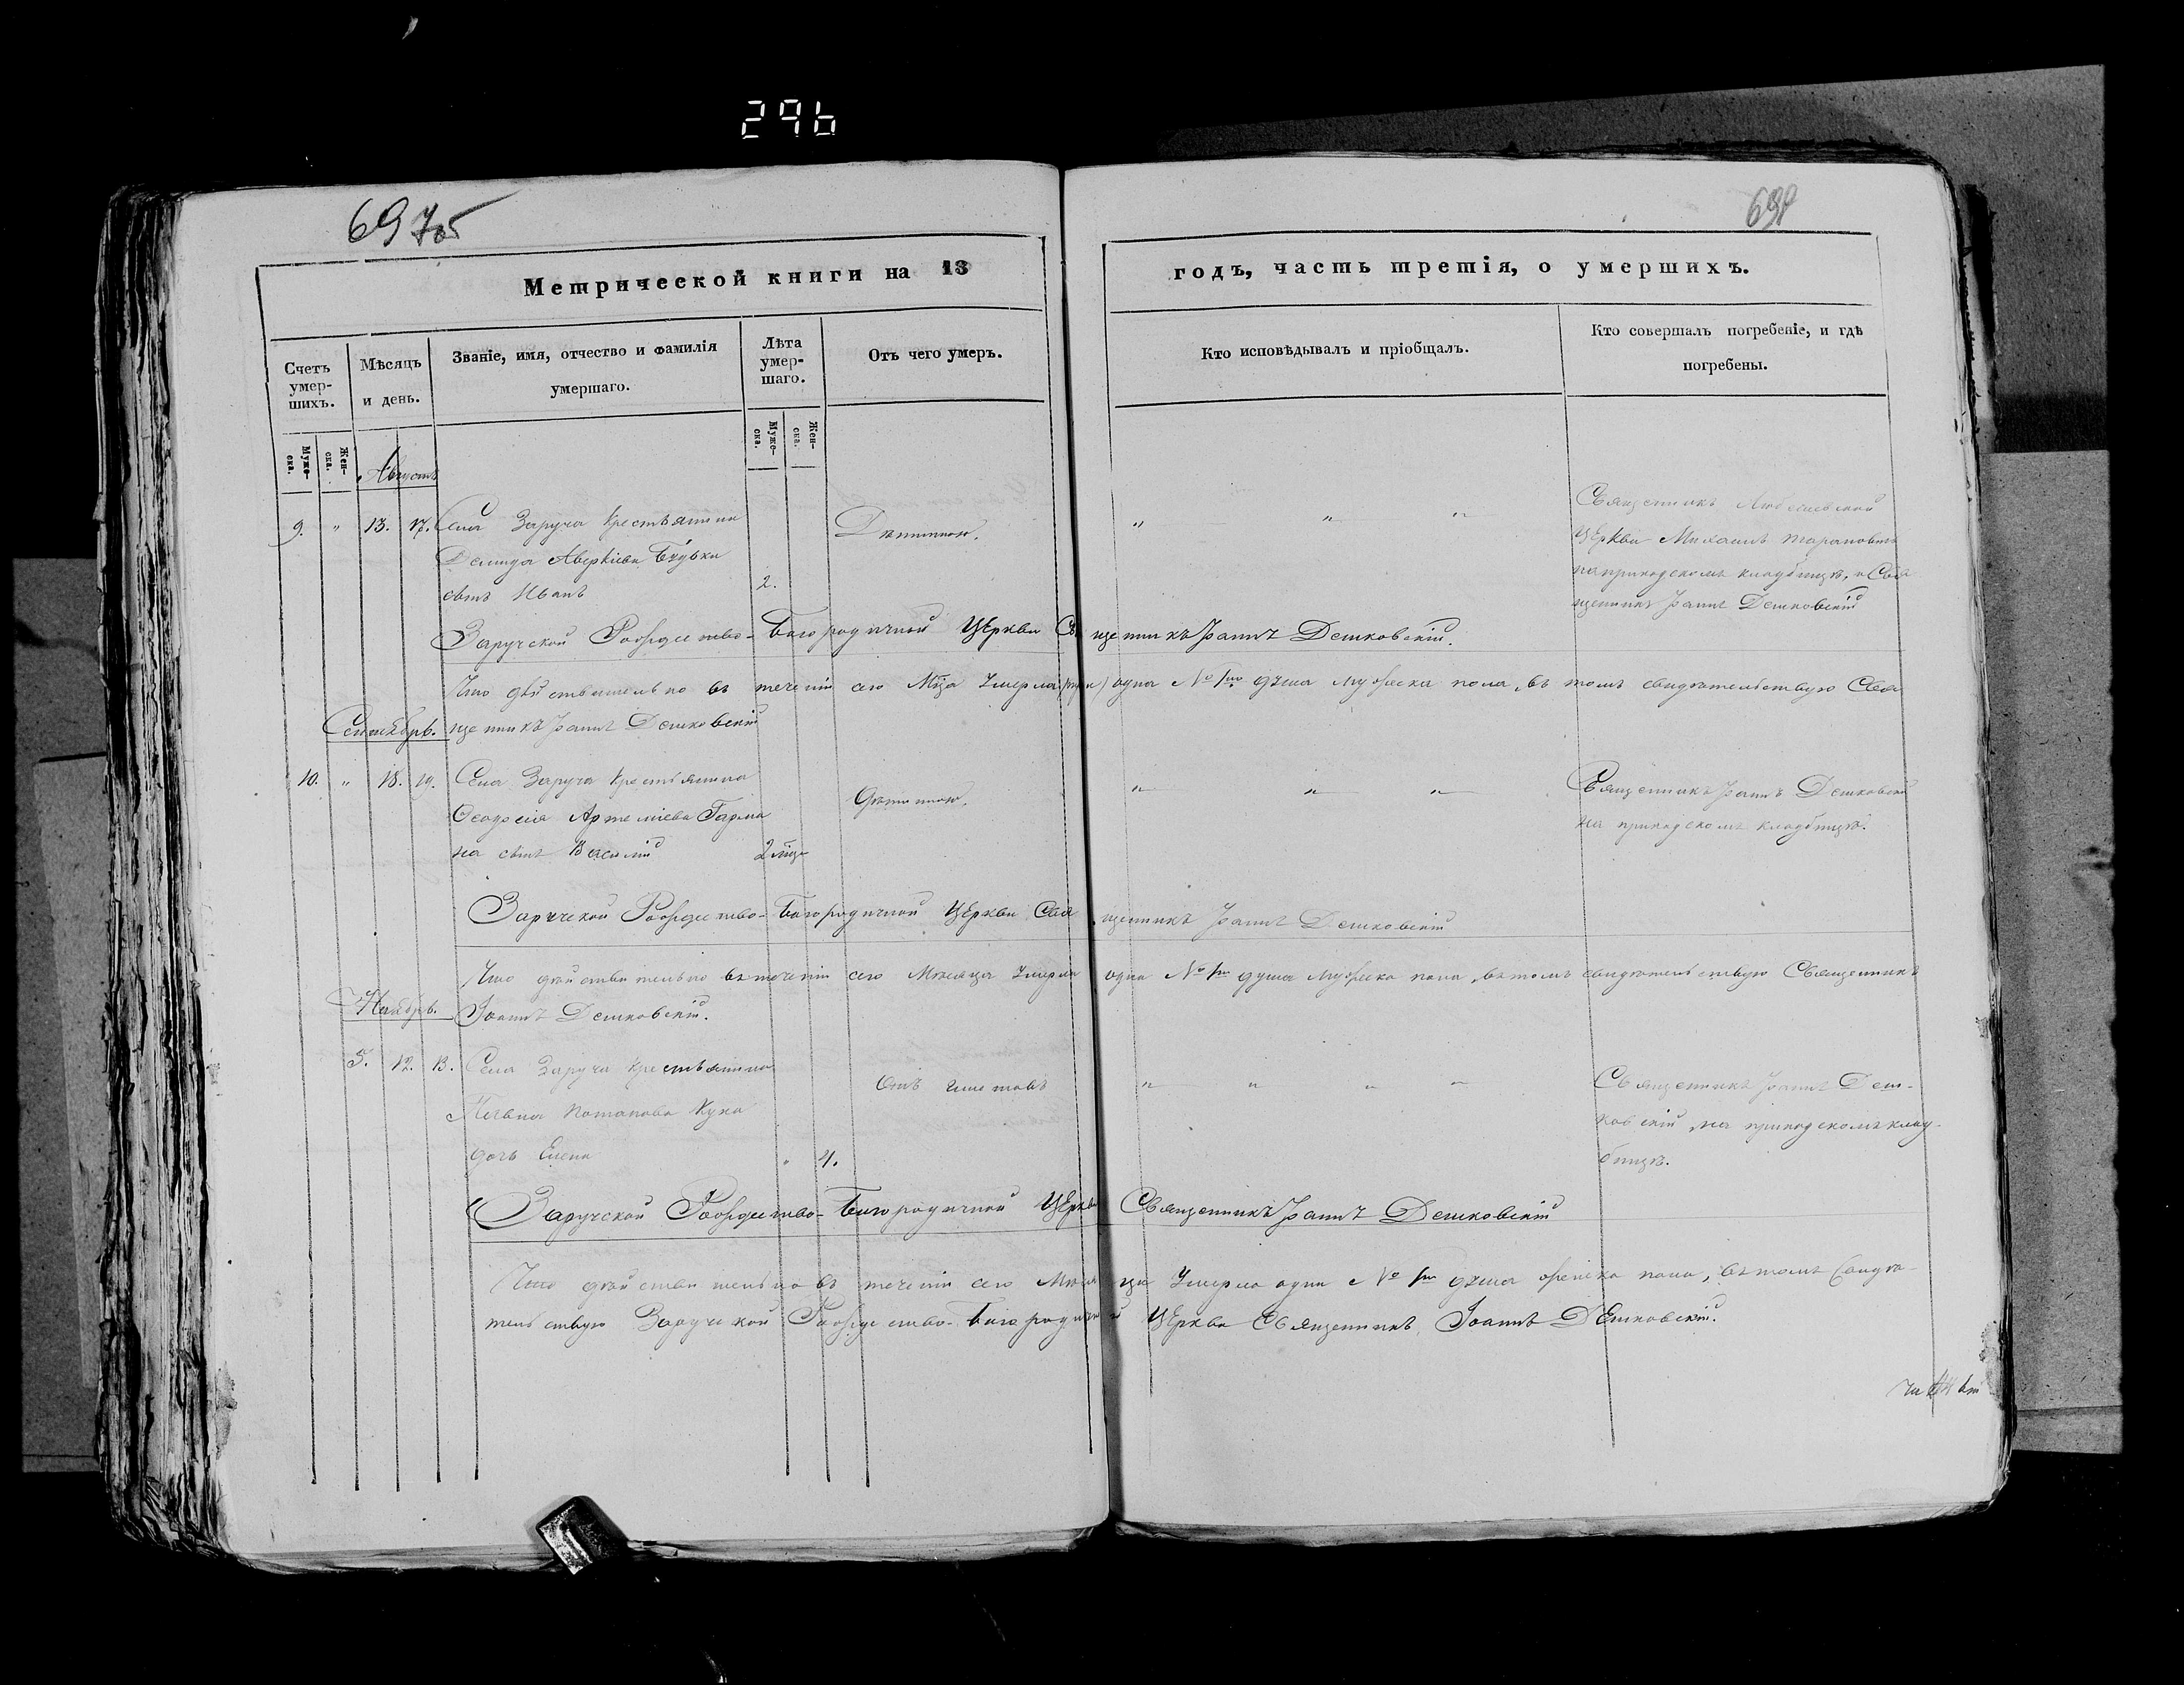 296
69 705
698
Метрической книги на 13 годъ, часть третія, о умершихъ.
Счетъ умершихъ.
Мѣсяцъ и день.
Званіе, имя, отчество и фамилія умершаго.
Лѣта умершаго.
Отъ чего умеръ.
Кто исповѣдывалъ и пріобщалъ.
Кто совершалъ погребеніе, и гдѣ погребены.
Муже-ска. Жен-ска. Муже-ска. Жен-ска.
Августъ
9. " 13. 17. Села Заруча Крестьянина
Демида Аверкіева
сынъ Иванъ 2.
" " "
Священникъ
Церкви Михаилъ
на приходскомъ кладбищѣ, и Свя
щенникъ Іоаннъ Дешковскій
Заручской Рождество-Богородичной Церкви Священникъ Іоаннъ Дешковскій.
Что дѣйствительно въ теченіи сего Мца Умерла одна № 1 душа мужеска пола, въ томъ свидѣтельствую Свя
щенникъ Іоаннъ Дешковскій
Сентябрь.
10. " 18. 19. Села Заруча Крестьянина
Феодосія Артеміева
на сынъ Василій 2
" " "
Священникъ Іоаннъ Дешковскій
на приходскомъ кладбищѣ.
Заручской Рождество-Богородичной Церкви Священникъ Іоаннъ Дешковскій
Что дѣйствительно въ теченіи сего Мѣсяца Умерла одна № 1 душа мужеска пола, въ томъ свидѣтельствую Священникъ
Іоаннъ Дешковскій.
Ноябрь.
5. 12. 13. Села Заруча Крестьянина
Потапова Кука
дочь Елена " 4.
Отъ
" " " "
Священникъ Іоаннъ Деш-
ковскій, на приходскомъ клад-
бищѣ.
Заручской Рождество-Богородичной Церкви Священникъ Іоаннъ Дешковскій
Что дѣйствительно въ теченіи сего Мѣсяца Умерла одна № 1 душа женска пола, въ томъ Свидѣ-
тельствую Заручской Рождество-Богородичной Церкви Священникъ Іоаннъ Дешковскій.